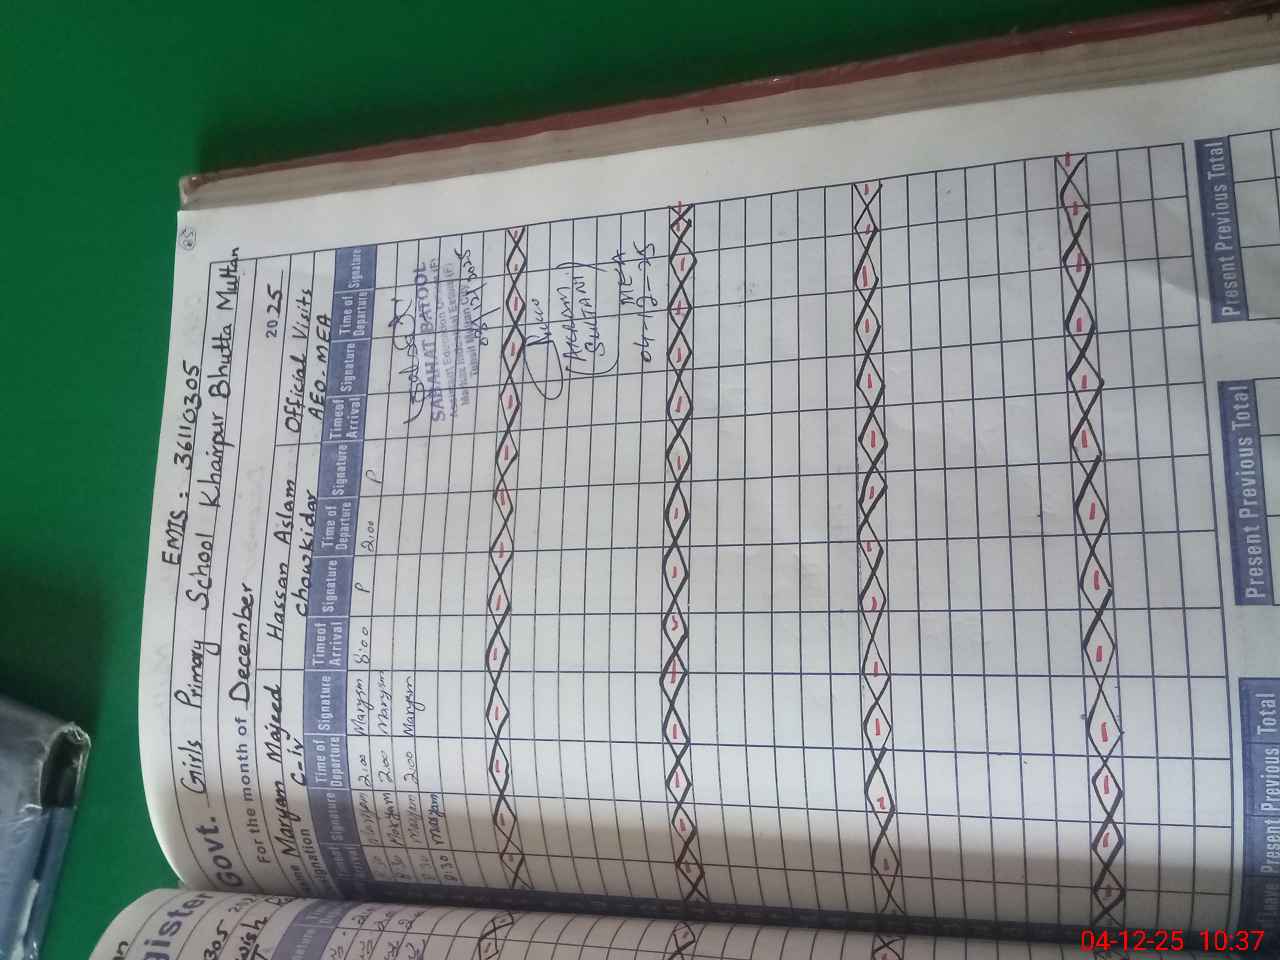 EMIS : 36110305
Govt. Girls Primary School Khairpur Bhutta Multan
For the month of December 2025
Maryam Majeed Hassan Aslam Official Visits
C-iv Chowkidar AEO. MEA
Time of Departure Signature Time of Arrival Signature Time of Departure Signature Time of Arrival Signature Time of Departure Signature
8:30 Maryam 2:00 Maryam 8:00 P 2:00 P
8:30 Maryam 2:00 Maryam
8:30 Maryam 2:00 Maryam
8:30 Maryam
SABAHAT BATOOL
Assistant Education Officer (F)
(AKRAM
SULTANI)
MEA
04-12-25
Present Previous Total
Present Previous Total
Leave Present Previous Total
gister
305
04-12-25 10:37